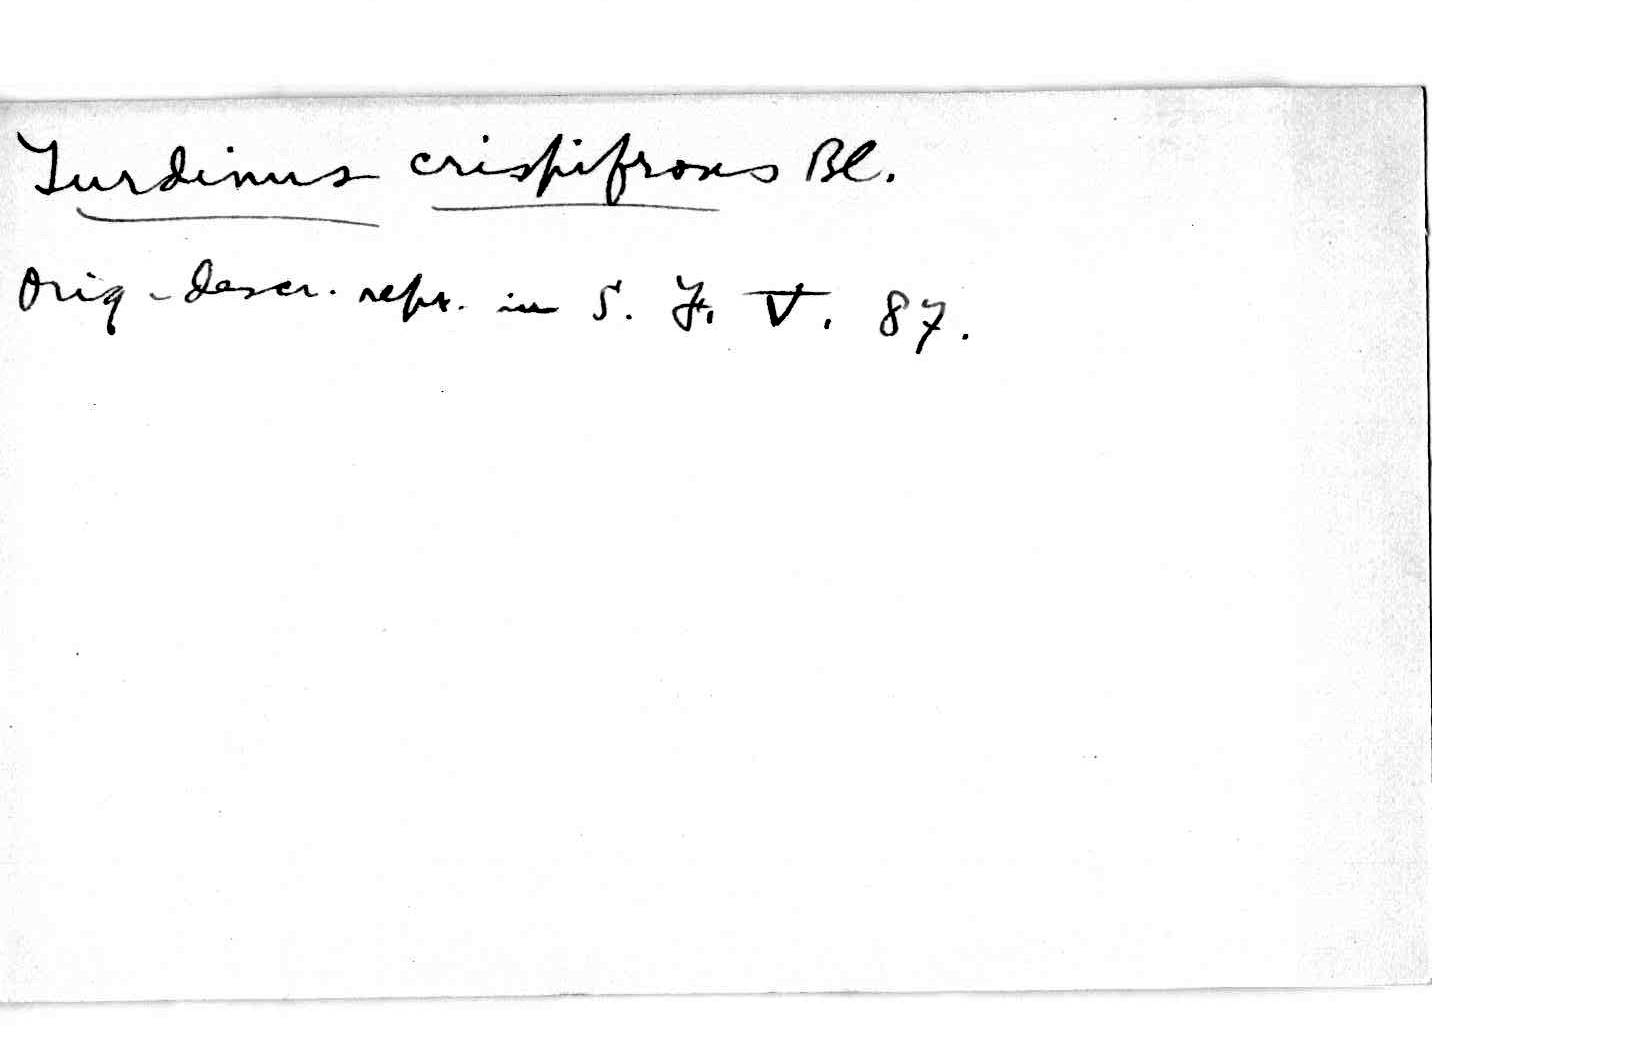 Turdinus crispifrons Bl.
Orig-descr. repr. in S. F. V. 87.